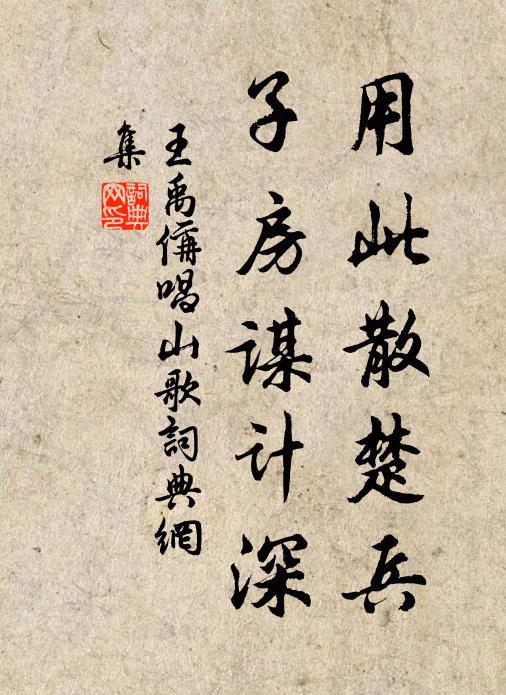 用此散楚兵
子房謀計深
王禹偁唱山歌詞典網
集
詞典網印